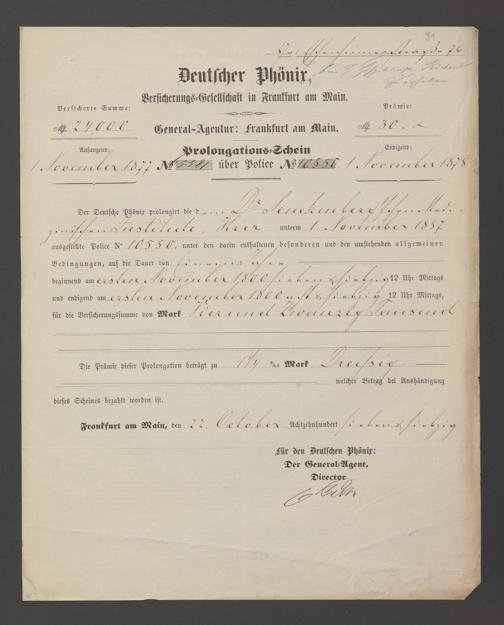 31
76
Deutscher Phönix,
Versicherungs-Gesellschaft in Frankfurt am Main.
Versicherte Summe:
Prämie:
ℳ 24000
General-Agentur: Frankfurt am Main.
ℳ 30.
Prolongations-Schein
Anfangend:
Endigend:
1 November 1877 № über Police № 10550 1 November 1878
Der Deutsche Phönix prolongirt die dem Dr Senckenberg'schen Medi-
zinischen Institute, Hier unterm 1 November 1857
ausgestellte Police Nº 10550, unter den darin enthaltenen besonderen und den umstehenden allgemeinen
Bedingungen, auf die Dauer von
beginnend am ersten November 1800 sieben & siebzig 12 Uhr Mittags
und endigend am ersten November 1800 acht & siebzig 12 Uhr Mittags,
für die Versicherungssumme von Mark Vier und Zwanzig Tausend
Die Prämie dieser Prolongation beträgt zu 1¼ ‰ Mark Dreissig
welcher Betrag bei Aushändigung
dieses Scheines bezahlt worden ist.
Frankfurt am Main, den 22 October Achtzehnhundert sieben & siebzig
Für den Deutschen Phönix:
Der General-Agent,
Director